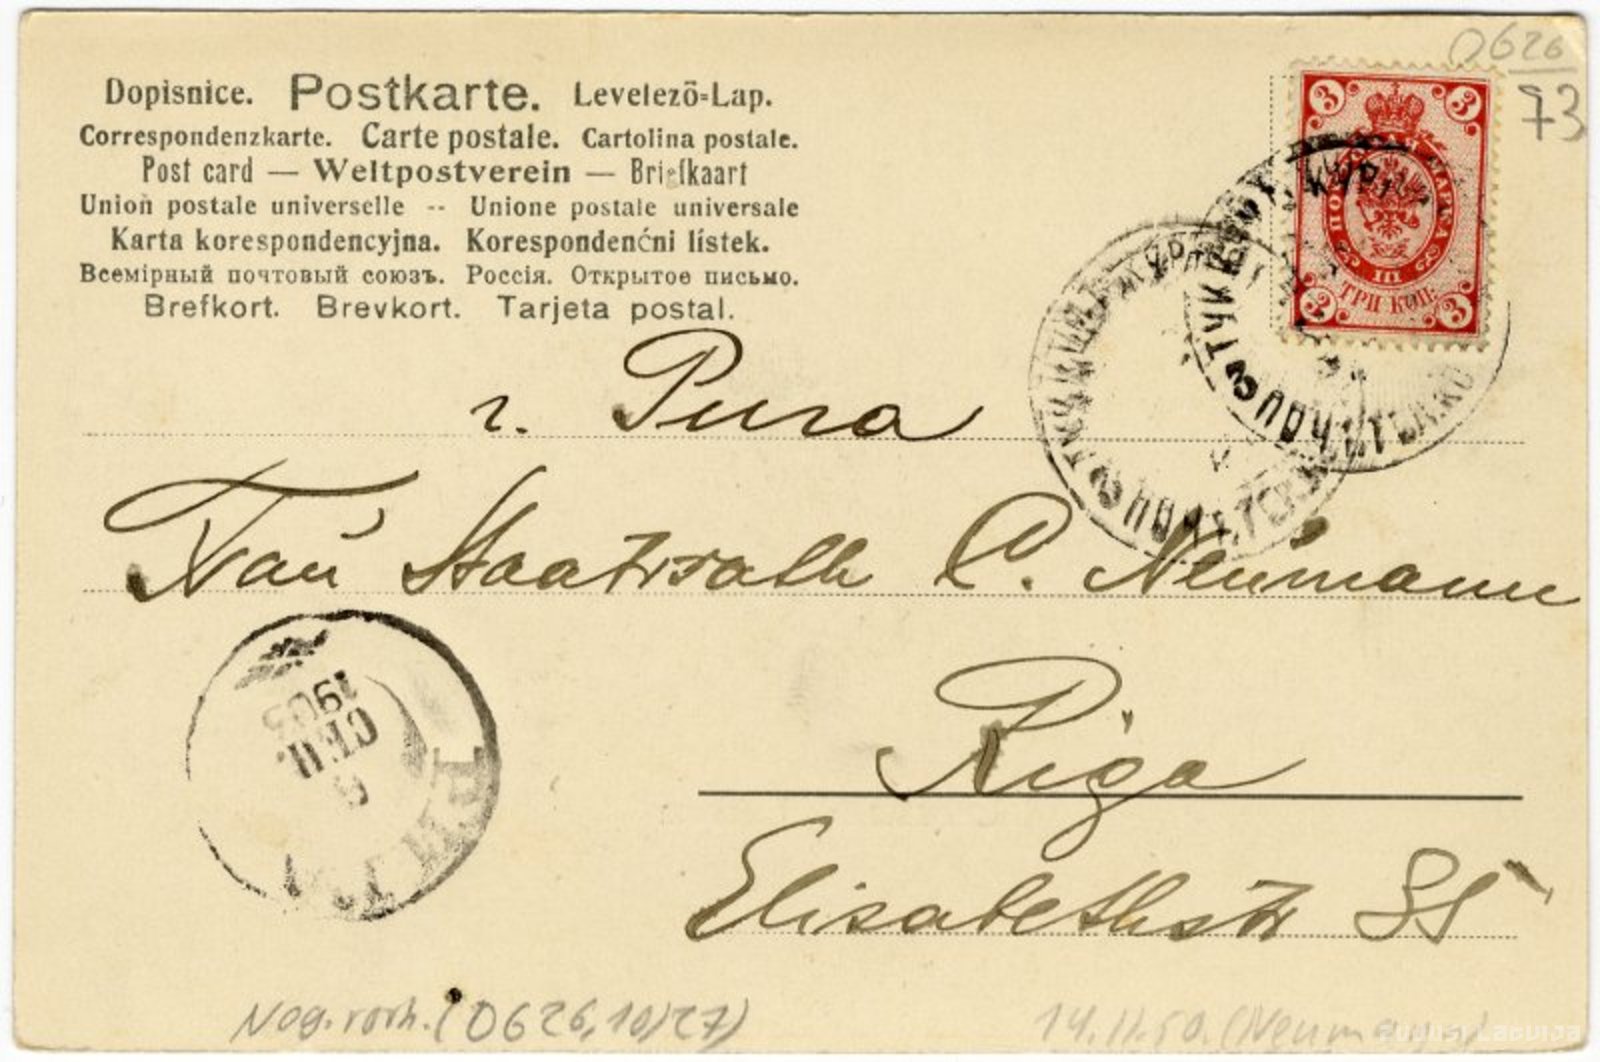 0626
73
Dopisnice. Postkarte. Levelezō-Lap.
Correspondenzkarte. Carte postale. Cartolina postale.
Post card — Weltpostverein — Briefkaart
Union postale universelle -- Unione postale universale
Karta korespondencyjna. Korespondenćni lístek.
Всемірный почтовый союзъ. Россія. Открытое письмо.
Brefkort. Brevkort. Tarjeta postal.
3 3
ПОЧТОВАЯ МАРКА
III
ТРИ КОП.
3 3
г. Рига
Frau Staatsrath C. Neumann
Riga
Elisabethstr
1905
СЕН.
Nog. 0626,10/27)
14.II.50. (Neumann)